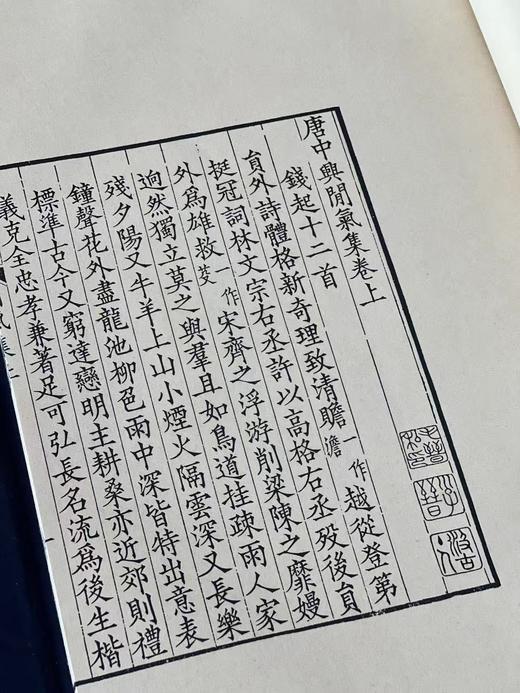 唐中興閒氣集卷上
錢起十二首
員外詩體格新奇理致清贍一作澹越從登第
挺冠詞林文宗右丞許以高格右丞歿後員
外爲雄救一作芟宋齊之浮游削梁陳之靡嫚
迥然獨立莫之與羣且如鳥道挂疎雨人家
殘夕陽又牛羊上山小煙火隔雲深又長樂
鐘聲花外盡龍池柳色雨中深皆特出意表
標準古今又窮達戀明主耕桑亦近郊則禮
義克全忠孝兼著足可弘長名流爲後生楷